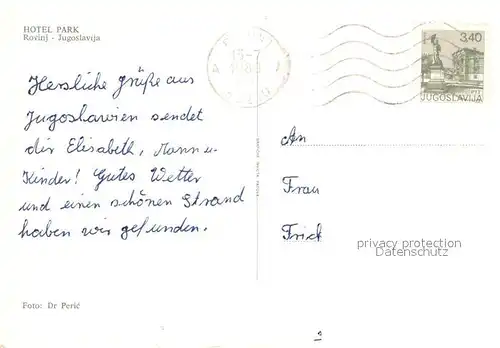 HOTEL PARK
Rovinj - Jugoslavija
3,40
JUGOSLAVIJA
Herzliche Grüße aus
Jugoslawien sendet
dir Elisabeth, Mann u.
Kinder! Gutes Wetter
und einen schönen Strand
haben wir gefunden.
An
Frau
privacy protection
DELCAMPE
Foto: Dr Perić